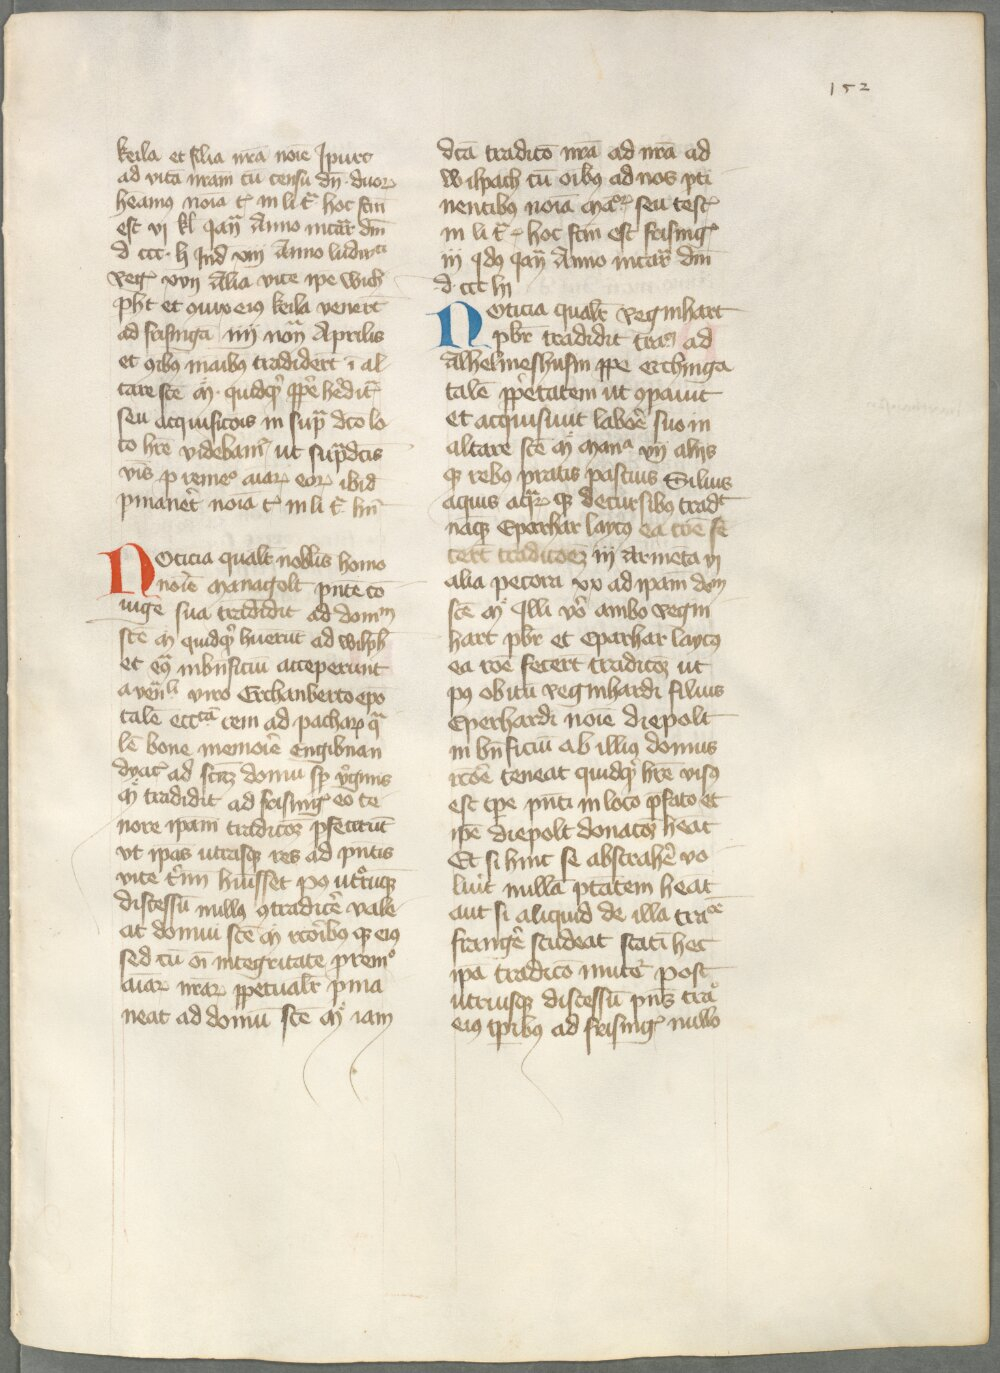 152
keila et filia nrā noīe Jpurc
ad vitā nrām cū censu dn̄. duoꝝ
heām9 noīa tͥ in li tͣ hoc fcm̄
est vj kl Jan̄ Anno incar̄ dn̄i
d ccc h Jnd viii Anno ludwici
reg xvij Alia vice ipe wich
pht et uxor ei9 keila vener̄t
ad frisinga iiij non̄ Aprilis
et oib9 māibus tradider̄t ī al
tare scē M quidqd ppe hedit
seu acquisicōis in supa dco lo
co hrē videbanͭ ut supadcīs
vīs p reme aīaꝝ eoꝝ ibid
pmanēt noīa t in li t
Noticia qualt nobilis homo
noīe managolt pn̄te cō
iuge sua tradidit ad dom
scē M quidqd huerūt ad wilph
et eā in bn̄ficiū acceperunt
a ven̄li viro Erchanberto epo
talē ecc cem ad pachaꝝ qa
lē bone memorie Engilman
dyac ad scā domū sp vgīnis
M tradidit ad frising eo te
nore ipam tradicōꝫ pfecerūt
vt ipas utrasqꝫ res ad pn̄tis
vite tīm huissꝫ po utrūqꝫ
discessū null9 9tradicē vale
at domui scē M rcorib9 qꝫ ei9
sed cū oī integritate p rem
aīaꝝ nraꝝ ppetualt pma
neat ad domū scē M iam
dcā tradicō nrā ad nrā ad
wilpach cū oib9 ad nos pti
nentibus noīa seu test
in li t hoc fcm̄ est frising
iij id9 Jan̄ Anno incar̄ dn̄i
d ccc lij
Noticia qualt reginhart
pbr tradidit ad
Alhelmeshusin ppe erchinga
talē ppetatem ut 9pauit
et acquisiuit laborē suo in
altare scē M vij alijs
qꝫ reb9 pratis pascuis siluis
aquis aqꝝ qꝫ decursib9 trad
naqꝫ Eperhar layc9 ea rōe fe
cert tradicōeꝫ iij armēta vj
alia pecora xx ad ipam dom
scē M Jlli vo ambo regin
hart pbr et Eparhar layc9
ea rōe fecert tradicōꝫ ut
po obitū reginhardi filius
Eperhardi noīe diepolt
in bn̄ficiū ab illi9 domus
rcōre teneat quidqd hrē vis9
est tpe pn̄ti in loco pfato et
ipe diepolt donacōꝫ heāt
Et si hinc se abstrahe vo
luit nullā ptatem heāt
aut si aliquid de illa
frange studeat stati hec
ipa tradicō inuite post
utriusqꝫ discessū pn̄s
ei9 tpib9 ad frising nullo